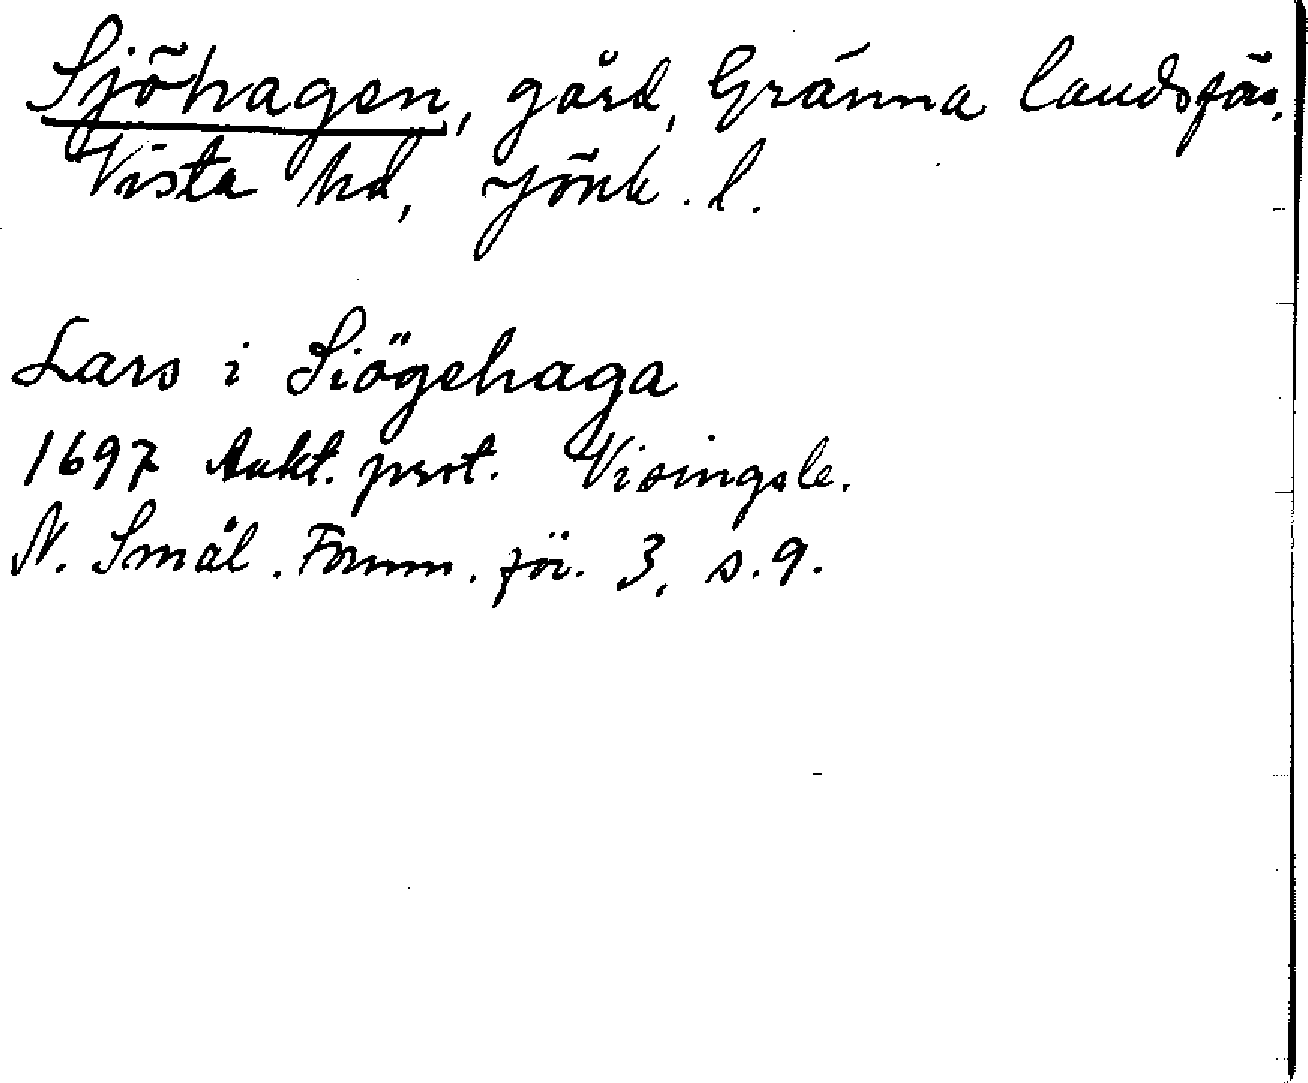 Sjöhagen, gård, Gränna landsför.
Vista hd, Jönk. l.
Lars i Siögehaga
1697 Aukt. prot. Visingsle.
N. Smål. Fornm. för. 3, s. 9.